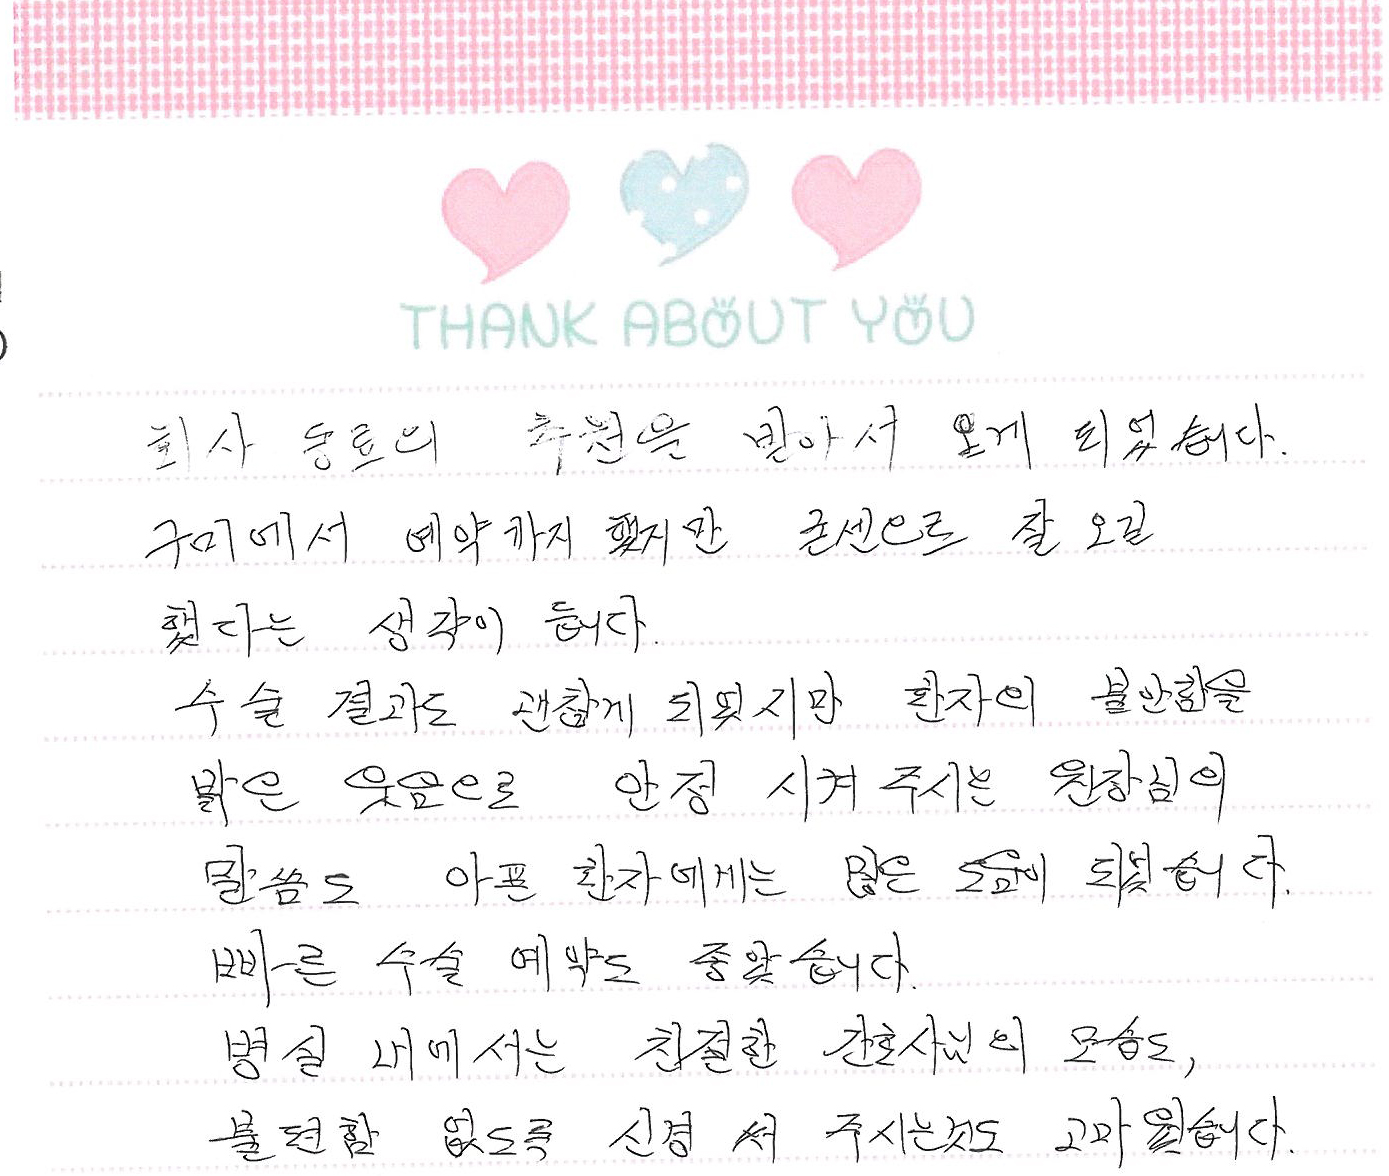 THANK ABOUT YOU
회사 동료의 추천을 받아서 오게 되었습니다.
구미에서 예약까지 했지만 굳센으로 잘 오길
했다는 생각이 듭니다.
수술 결과도 괜찮게 되었지만 환자의 불안함을
밝은 웃음으로 안정 시켜 주시는 원장님의
말씀도 아픈 환자에게는 많은 도움이 되었습니다.
빠른 수술 예약도 좋았습니다.
병실 내에서는 친절한 간호사님의 모습도,
불편함 없도록 신경 써 주시는것도 고마웠습니다.